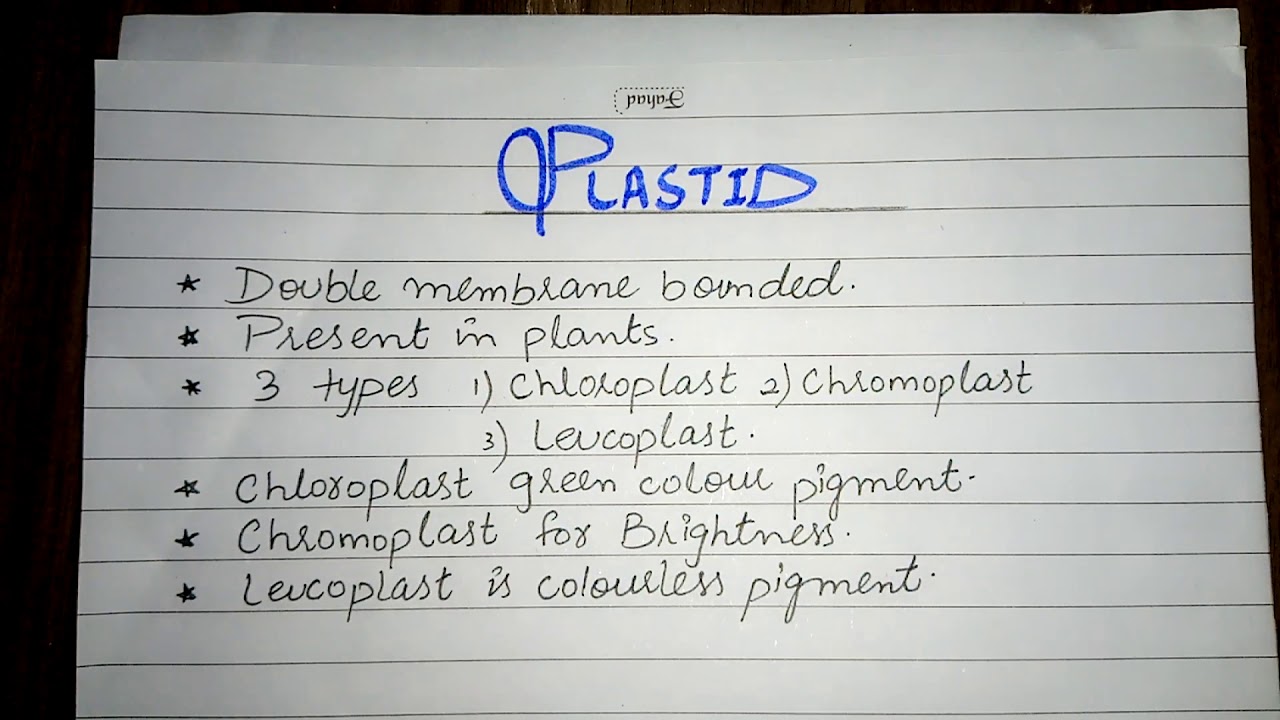 Fahad
PLASTID
* Double membrane bounded.
* Present in plants.
* 3 types 1) Chloroplast 2) Chromoplast
3) Leucoplast.
* Chloroplast green colour pigment.
* Chromoplast for Brightness.
* Leucoplast is colourless pigment.